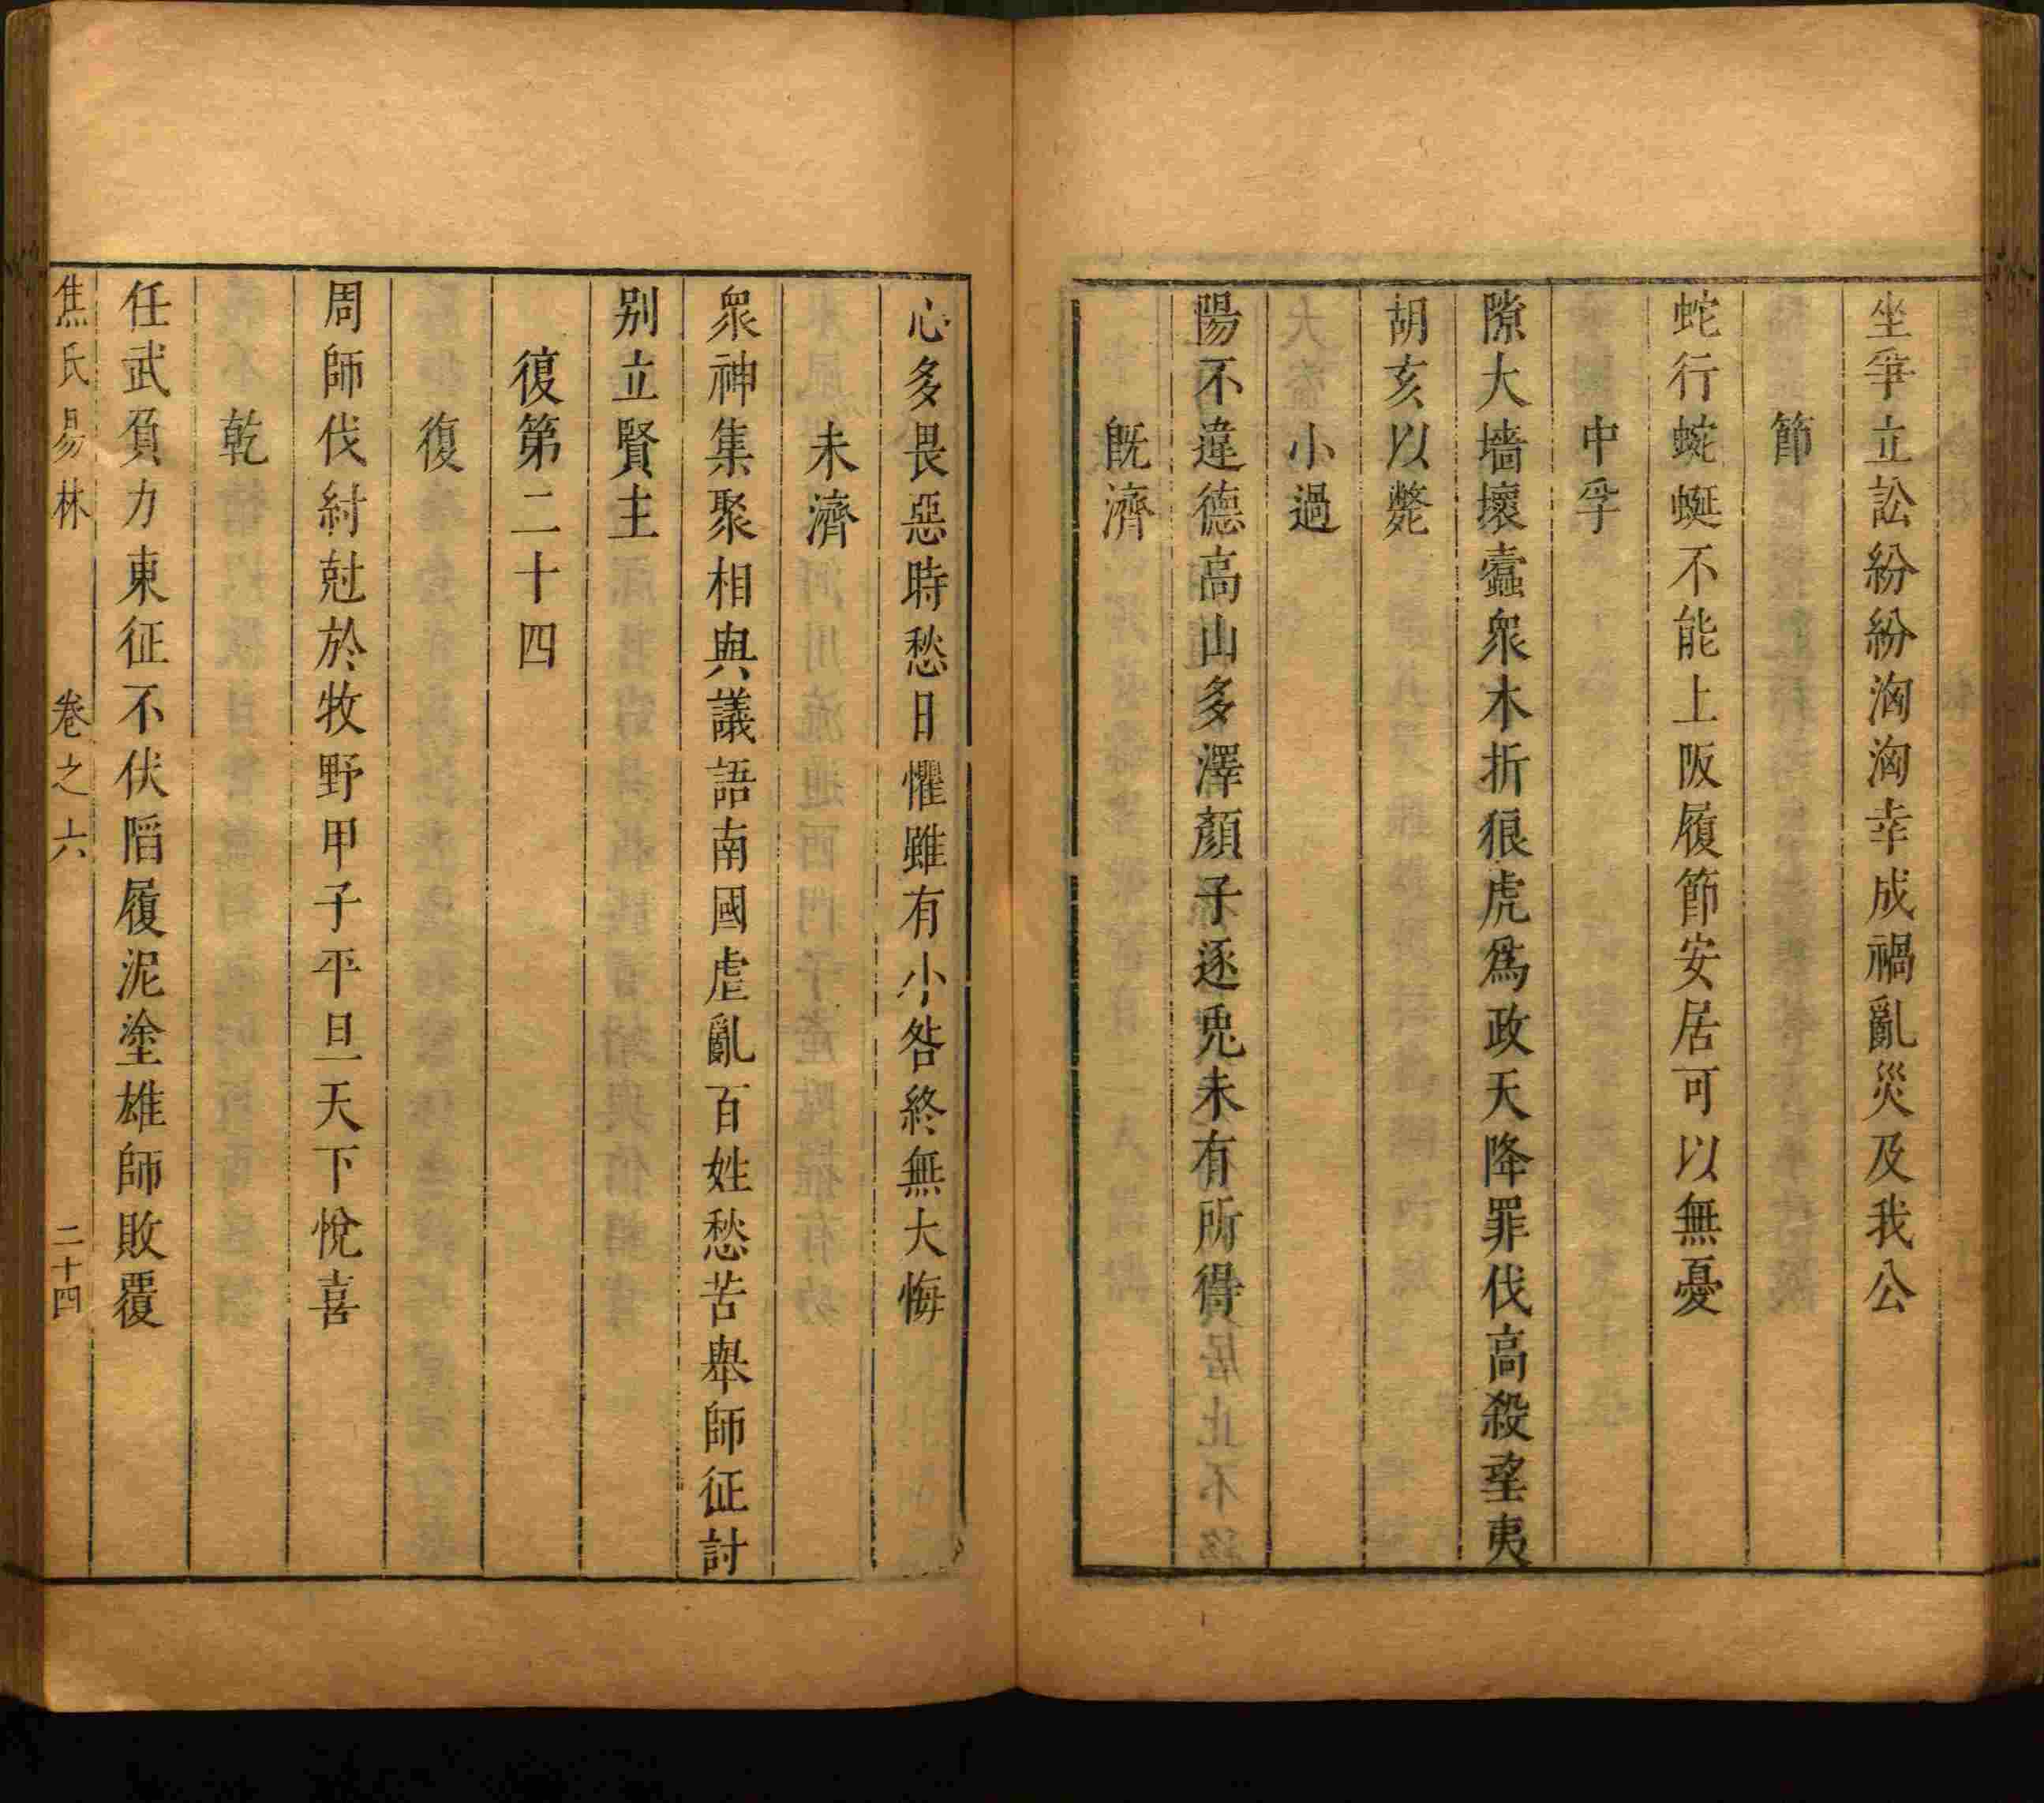 坐爭立訟紛紛洶洶幸成禍亂災及我公
節
蛇行蜿蜒不能上阪履節安居可以無憂
中孚
隙大墻壞蠹衆木折狼虎爲政天降罪伐高殺望夷
胡亥以斃
小過
陽不違德高山多澤顏子逐兎未有所得
旣濟
心多畏惡時愁日懼雖有小咎終無大悔
未濟
衆神集聚相與議語南國虐亂百姓愁苦舉師征討
别立賢主
復第二十四
復
周師伐紂尅於牧野甲子平旦天下悅喜
乾
任武負力東征不伏陷履泥塗雄師敗覆
焦氏易林 卷之六 二十四